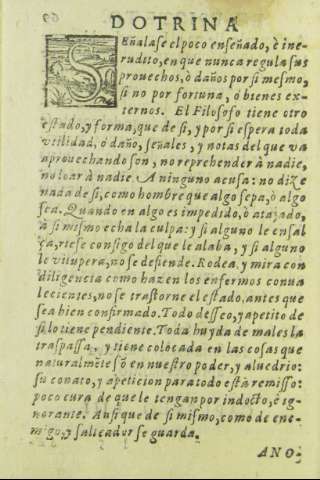 DOTRINA
SEñalase el poco enseñado, ò ine-
rudito, en que nunca regula sus
prouechos, ò daños por si mesmo,
si no por fortuna, ò bienes ex-
ternos. El Filosofo tiene otro
estado, y forma, que de si, y por si espera toda
vtilidad, ò daño, señales, y notas del que va
aprouechando son, no reprehender à nadie,
no loar à nadie. A ninguno acusa: no dize
nada de si, como hombre que algo sepa, ò algo
sea. Quando en algo es impedido, ò atajado,
à si mismo echa la culpa: y si alguno le ensal
ça, riese consigo del que le alaba, y si alguno
le vitupera, no se defiende. Rodea, y mira con
diligencia como hazen los enfermos conua
lecientes, no se trastorne el estado, antes que
sea bien confirmado. Todo desseo, y apetito de
si lo tiene pendiente. Toda huyda de males la
traspassa, y tiene colocada en las cosas que
naturalmẽte sõ en nuestro poder, y aluedrio:
su conato, y apeticion para todo està remisso:
poco cura de que le tengan por indocto, è ig-
norante. Ausi que de si mismo, como de ene-
migo, y salteador se guarda.
ANO-